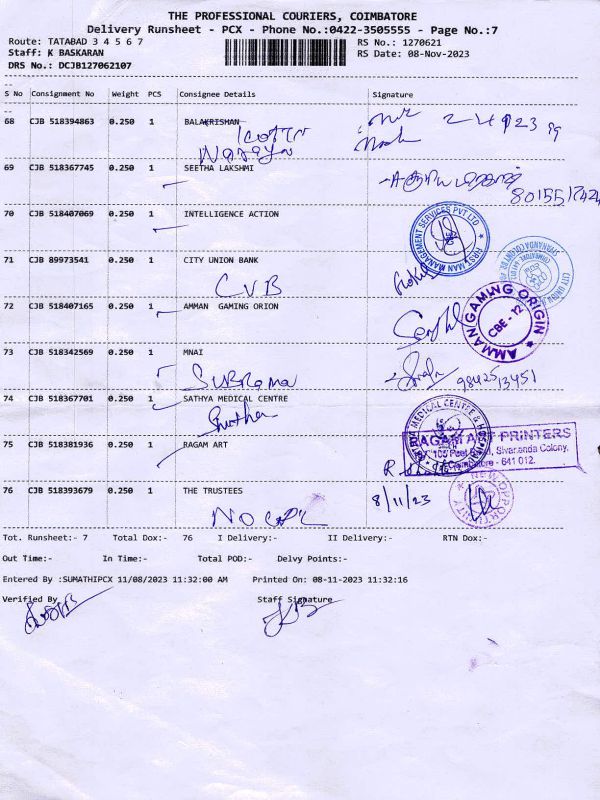 THE PROFESSIONAL COURIERS, COIMBATORE
Delivery Runsheet - PCX - Phone No.:0422-3505555 - Page No.:7
Route: TATABAD 3 4 5 6 7 RS No.: 1270621
Staff: K BASKARAN RS Date: 08-Nov-2023
DRS No.: DCJB127062107
S No Consignment No Weight PCS Consignee Details Signature
68 CJB 518394863 0.250 1 BALAKRISHAN
69 CJB 518367745 0.250 1 SEETHA LAKSHMI
70 CJB 518407069 0.250 1 INTELLIGENCE ACTION
FIRST MAN MANAGEMENT SERVICES PVT LTD
71 CJB 89973541 0.250 1 CITY UNION BANK
CUB
72 CJB 518407165 0.250 1 AMMAN GAMING ORION
AMMAN GAMING ORIGIN
CBE - 12
73 CJB 518342569 0.250 1 MNAI
98425 13451
74 CJB 518367701 0.250 1 SATHYA MEDICAL CENTRE
75 CJB 518381936 0.250 1 RAGAM ART
RAGAM ART PRINTERS
Sivananda Colony,
Coimbatore - 641 012.
76 CJB 518393679 0.250 1 THE TRUSTEES
8/11/23
NEW OPPORTUNITY
Tot. Runsheet:- 7 Total Dox:- 76 I Delivery:- II Delivery:- RTN Dox:-
Out Time:- In Time:- Total POD:- Delvy Points:-
Entered By :SUMATHIPCX 11/08/2023 11:32:00 AM Printed On: 08-11-2023 11:32:16
Verified By Staff Signature